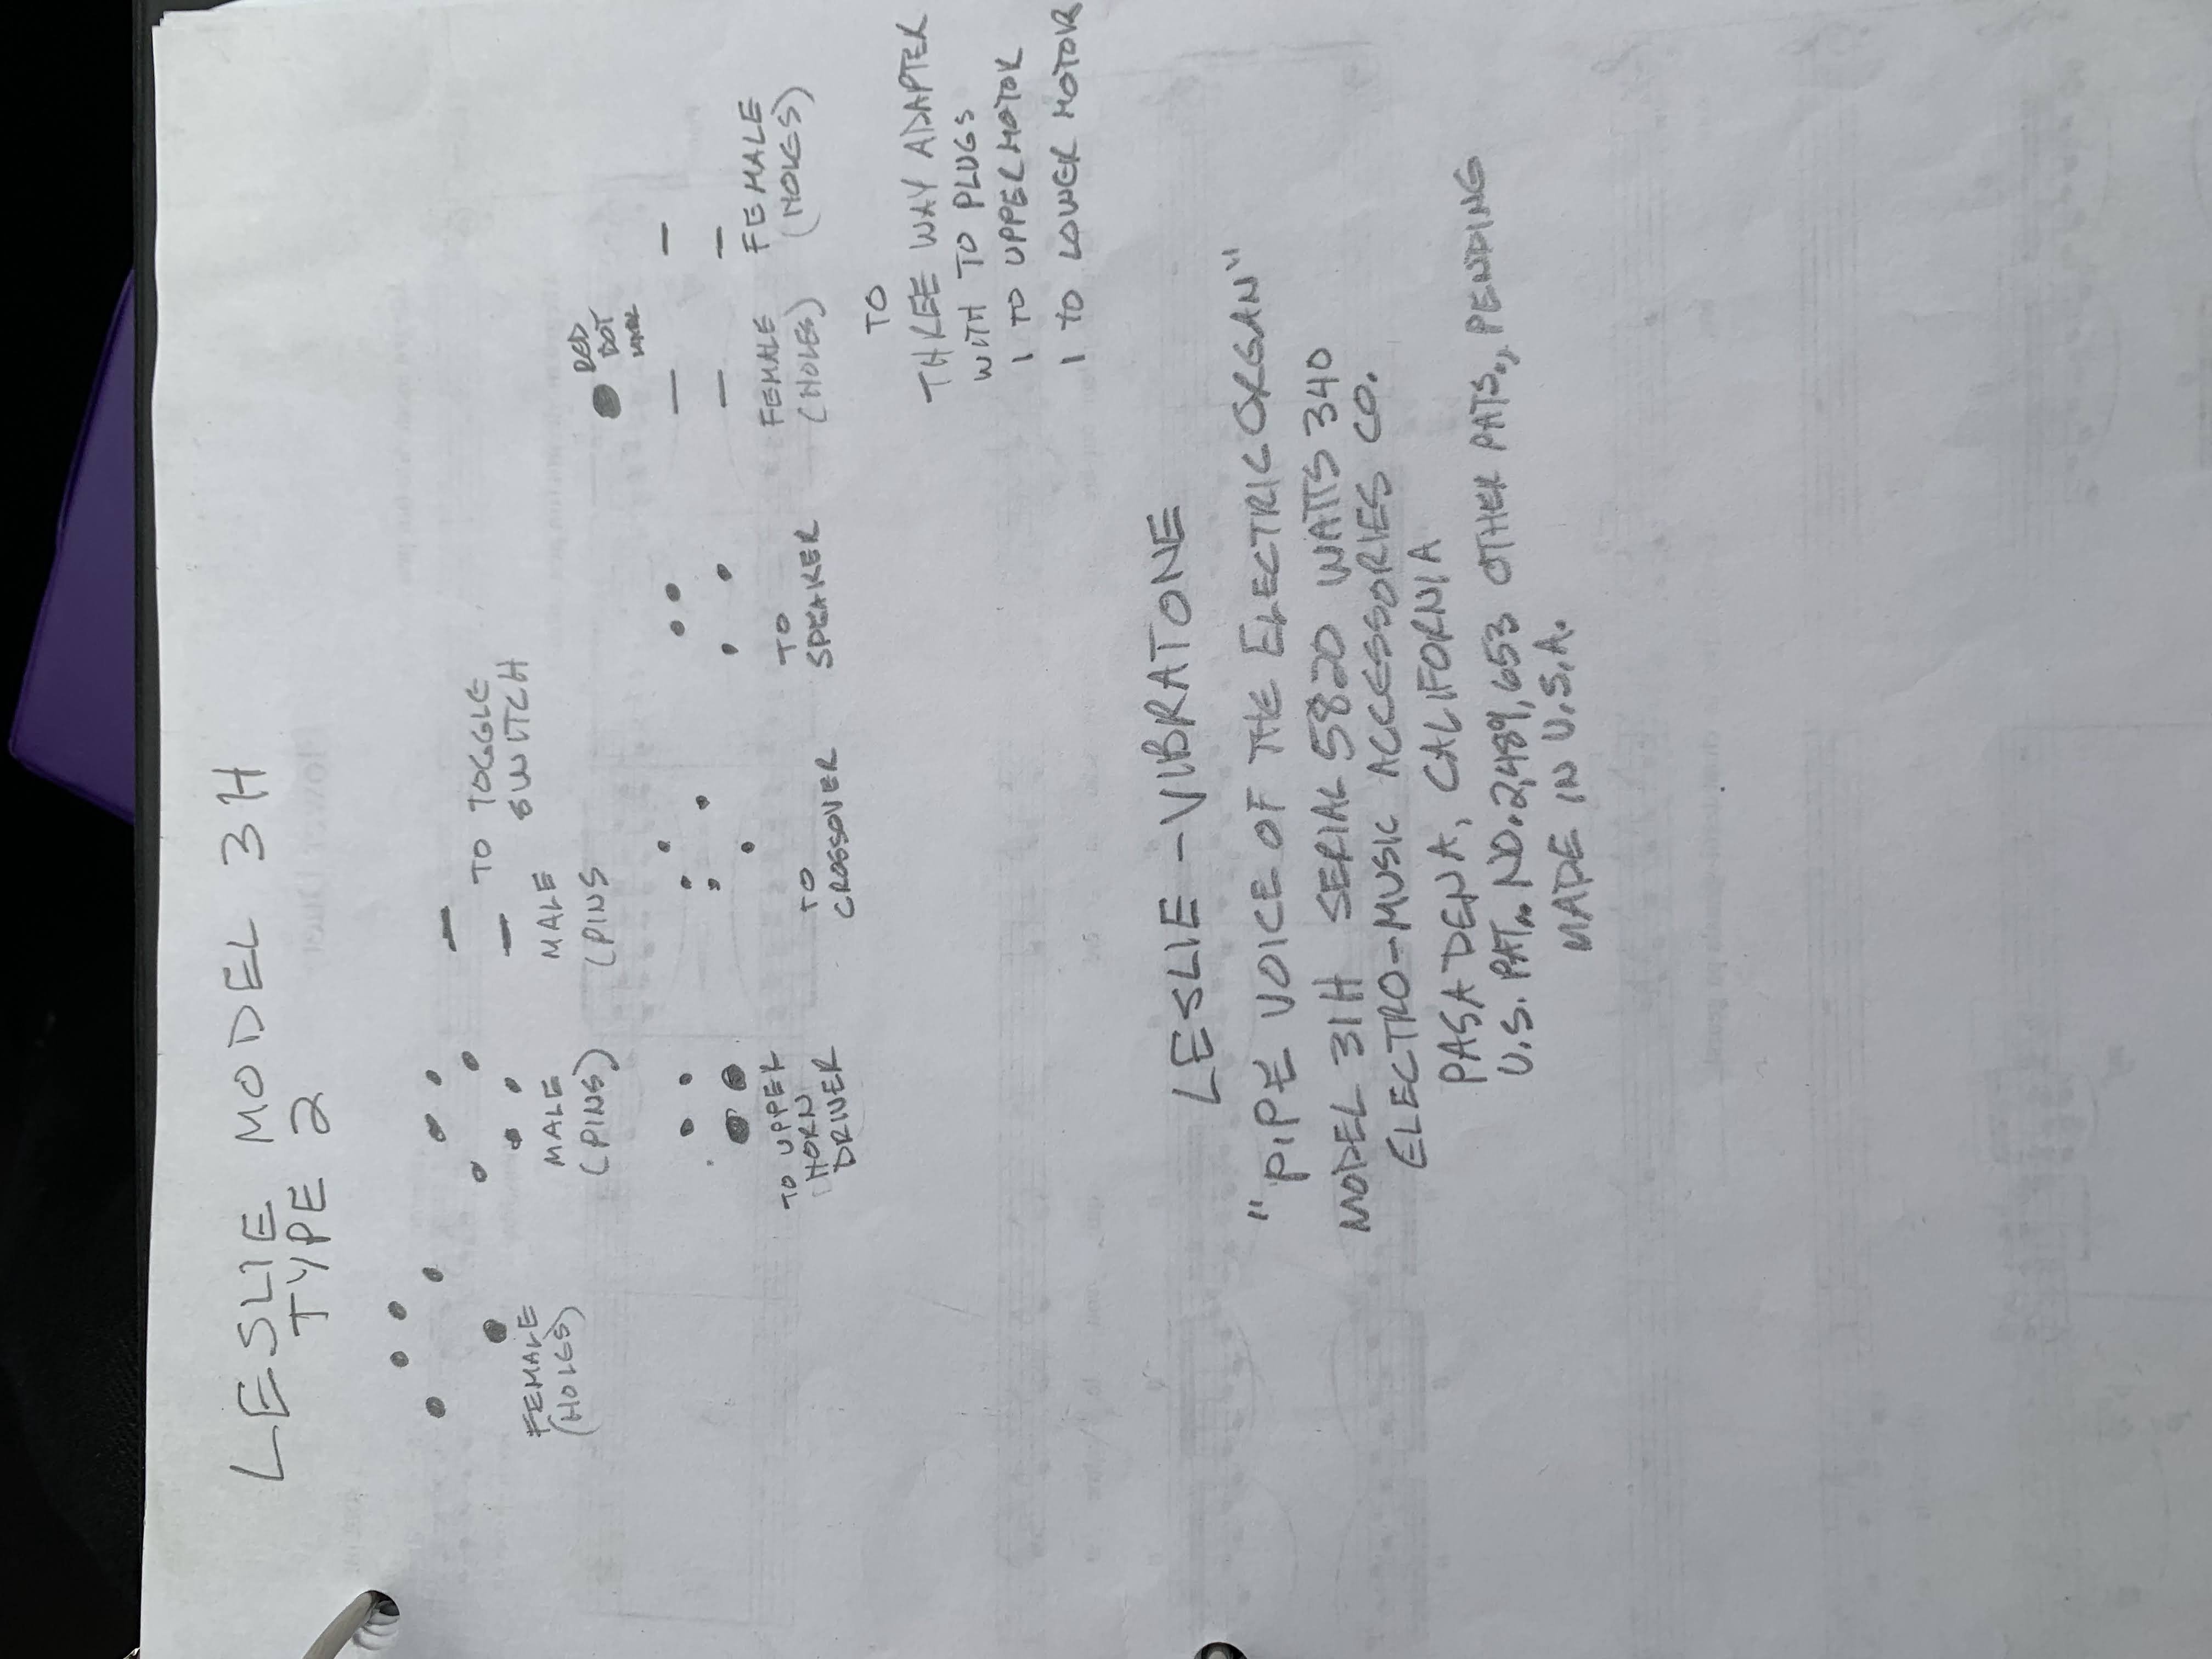 LESLIE MODEL 3H
TYPE 2
TO TOGGLE
SWITCH
FEMALE
(HOLES)
MALE
(PINS)
MALE
(PINS
RED
DOT
TO UPPER
HORN
DRIVER
TO
CROSSOVER
TO
SPEAKER
FEMALE
(HOLES)
FEMALE
(HOLES)
TO
THREE WAY ADAPTER
WITH TO PLUGS
1 TO UPPER MOTOR
1 TO LOWER MOTOR
LESLIE-VIBRATONE
"PIPE VOICE OF THE ELECTRIC ORGAN"
MODEL 31H SERIAL 5820 WATTS 340
ELECTRO-MUSIC ACCESSORIES CO.
PASADENA, CALIFORNIA
U.S. PAT. NO. 2,489,653 OTHER PATS., PENDING
MADE IN U.S.A.